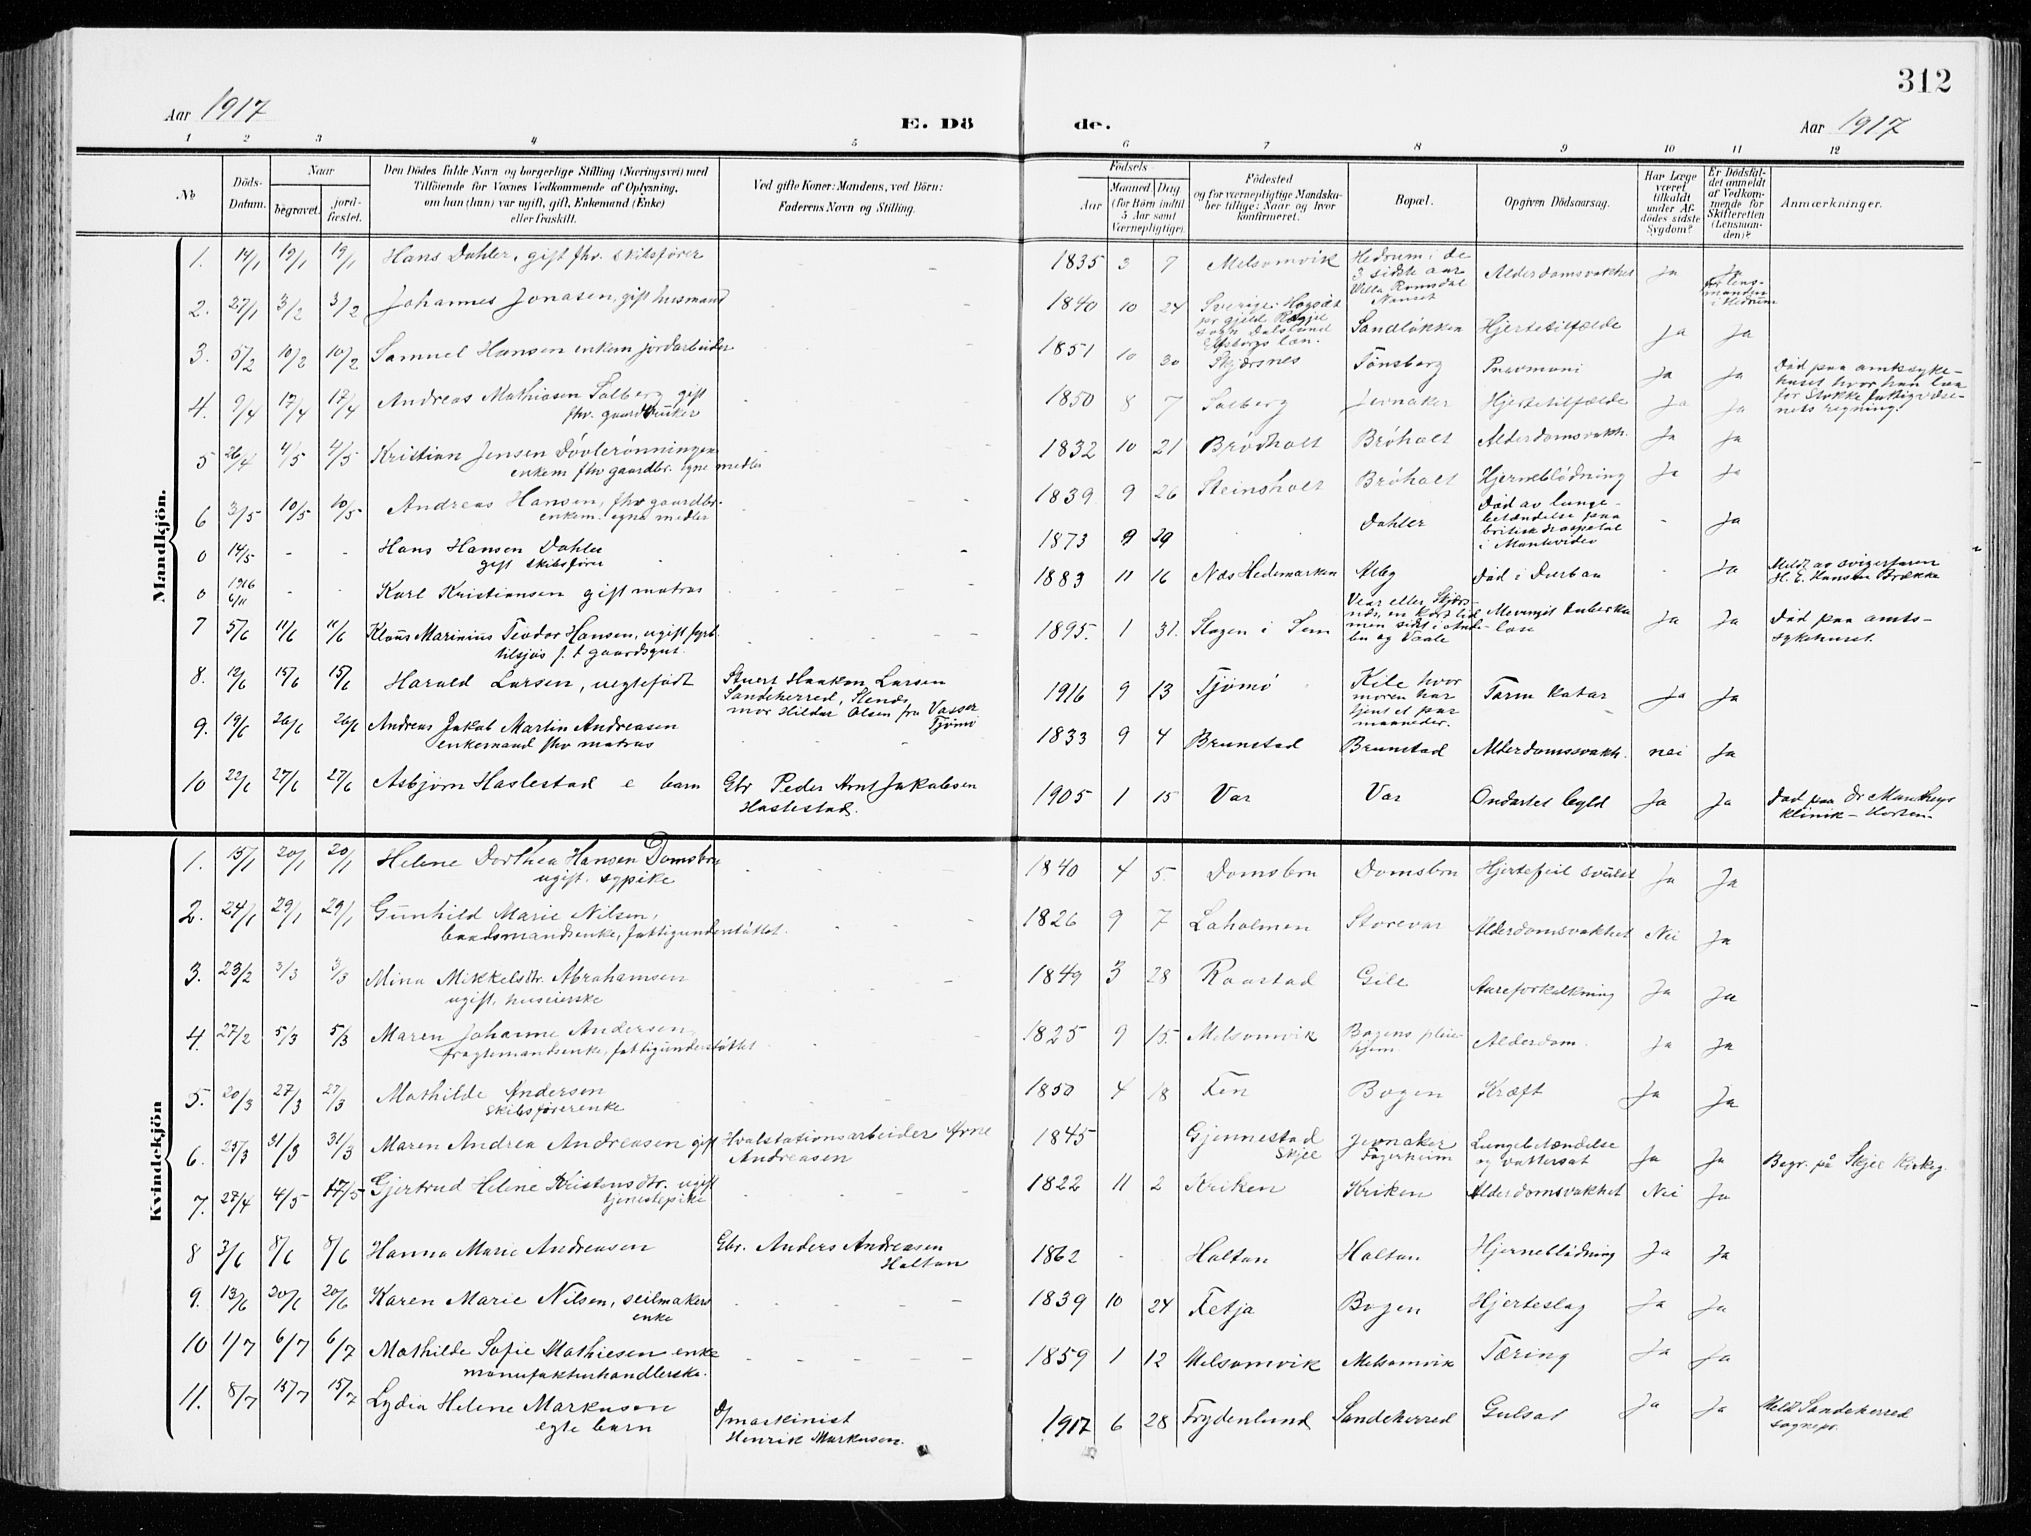 312
Aar 1917
E. Dö
de.
Aar 1917
1 2 3 4 5 6 7 8 9 10 11 12
№
Döds-Datum.
Naar
begravet.
jord-fæstet.
Den Dödes fulde Navn og borgerlige Stilling (Næringsvei) med
Tilföiende for Voxnes Vedkommende af Oplysning,
om han (hun) var ugift, gift, Enkemand (Enke)
eller fraskilt.
Ved gifte Koner: Mandens, ved Börn:
Faderens Navn og Stilling.
Födsels-
Aar
Maaned Dag
(for Börn indtil
5 Aar samt
Værnepligtige).
Födested
og for værnepligtige Mandska-
ber tillige: Naar og hvor
konfirmeret.
Bopæl.
Opgiven Dödsaarsag.
Har Læge
været
tilkaldt
under Af-
dödes sidste
Sygdom?
Er Dödsfal-
det anmeldt
af Vedkom-
mende for
Skifteretten
(Lensman-
den)?
Anmærkninger.
Mandkjön.
1. 14/1 19/1 19/1 Hans Dahler, gift fhv. skibsfører - - 1835 3 7 Melsomvik Hedrum i de
3 sidste aar
Villa Romsdal
Nanset Alderdomsvakhet Ja Ja
for lens-
manden
i Hedrum
2. 27/1 3/2 3/2 Johannes Jonasen, gift husmand 1840 10 24 Sverige: Sandløkken Hjertetilfælde Ja Ja
3. 5/2 10/2 10/2 Samuel Hansen enkem jordarbeider 1851 10 30 Skjærsnes Tønsberg Pnevmoni Ja Ja Død paa amtssyke-
huset hvor han laa
for Stokke fattigvæse-
nets regning.
4. 9/4 17/4 17/4 Andreas Mathiasen Solberg gift
fhv. gaardbruker 1850 8 7 Solberg Jevnaker Hjertetilfælde Ja Ja
5 26/4 4/5 4/5 Kristian Jensen Døvlerønningen
enkem fhv gaardbr. egne medler 1832 10 21 Brødholt Brøholt Alderdomsvakh. Ja Ja
6 3/5 10/5 10/5 Andreas Hansen, fhv gaardbr.
enkem. egne medler 1839 9 26 Steinsholt Brøholt Hjerneblødning Ja Ja
0 14/5 - - Hans Hansen Dahler
gift skibsfører 1873 9 29 Dahler Død av lunge-
betændelse paa
britisk hospital
i Montevideo - Ja
0 1916
6/11 - - Karl Kristiansen gift matros 1883 11 16 Næs Hedemarken Alby Død i Durban - Ja Meldt av svigerfaren
H. E. Hansen Brække
7 5/6 11/6 11/6 Klaus Marinius Teodor Hansen, ugift fyrb.
tilsjøs f. t gaardsgut. 1895. 1 31. Slagen i Sem Vear eller Skjærs-
nes, en kort tid
men sidst i Ande-
bu og Vaale Ja Ja Død paa amts-
sykehuset.
8. 12/6 15/6 15/6 Harald Larsen, uegtefødt Stuert Haakon Larsen
Sandeherred,
mor Hildur Olsen fra Vasser
Tjømø 1916 9 13 Tjømø Kile hvor
moren har
tjent et par
maaneder. Tarm katar Ja Ja
9. 19/6 26/6 26/6 Andreas Jakob Martin Andreasen
enkemand fhv matros 1833 9 4 Brunstad Brunstad Alderdomssvakh. nei Ja
10 22/6 27/6 27/6 Asbjørn Haslestad e barn Gbr Peder Arnt Jakobsen
Haslestad. 1905 1 15 Var Var Ondartet byld Ja Ja Død paa Dr Mantheys
klinik - Horten.
Kvindekjön
1. 15/1 20/1 20/1 Helene Dorthea Hansen Domsbru
ugift. sypike 1840 4 5. Domsbru Domsbru Hjertefeil svulst Ja Ja
2. 24/1 29/1 29/1 Gunhild Marie Nilsen,
baadsmandsenke, fattigunderstøttet. 1826 9 7 Laholmen Storevar Alderdomsvakhet Nei Ja
3. 23/2 3/3 3/3 Mina Mikkelsdtr. Abrahamsen
ugift, huseierske 1849 3 28 Raastad Gile Aareforkalkning Ja Ja
4. 27/2 5/3 5/3 Maren Johanne Andersen
fragtemandsenke, fattigunderstøttet 1825 9 15. Melsomvik Bogens pleie-
hjem Alderdom. Ja Ja
5. 20/3 27/3 27/3 Mathilde Andersen
skibsførerenke 1850 4 18 Fen Bogen Kræft Ja Ja
6. 25/3 31/3 31/3 Maren Andrea Andreasen gift Hvalstationsarbeider Arne
Andreasen 1845 Gjennestad
Skjee Jevnaker
Fagerheim Lungebetændelse
og vattersot Ja Ja Begr. på Skjee kirkeg.
7. 27/4 4/5 17/5 Gjertrud Helene Kristensdtr. ugift
tjenestepike 1822 11 2 Kriken Kriken Alderdomsvakhet Nei Ja
8 3/6 8/6 8/6 Hanna Marie Andreasen Gbr. Anders Andreasen
Holtan 1862 - - Holtan Holtan Hjerneblødning Ja Ja
9. 13/6 20/6 20/6 Karen Marie Nilsen, seilmakers
enke 1839 10 24 Fetja Bogen Hjerteslag Ja Ja
10 1/7 6/7 6/7 Mathilde Sofie Mathiesen enke
manufakturhandlerske. 1859 1 12 Melsomvik Melsomvik Tæring Ja Ja
11. 8/7 15/7 15/7 Lydia Helene Markusen
egte barn maskinist
Henrik Markusen. 1917 6 28 Frydenlund Sandeherred Gulsot Ja Ja Meldt Sandeherred
sognepr.